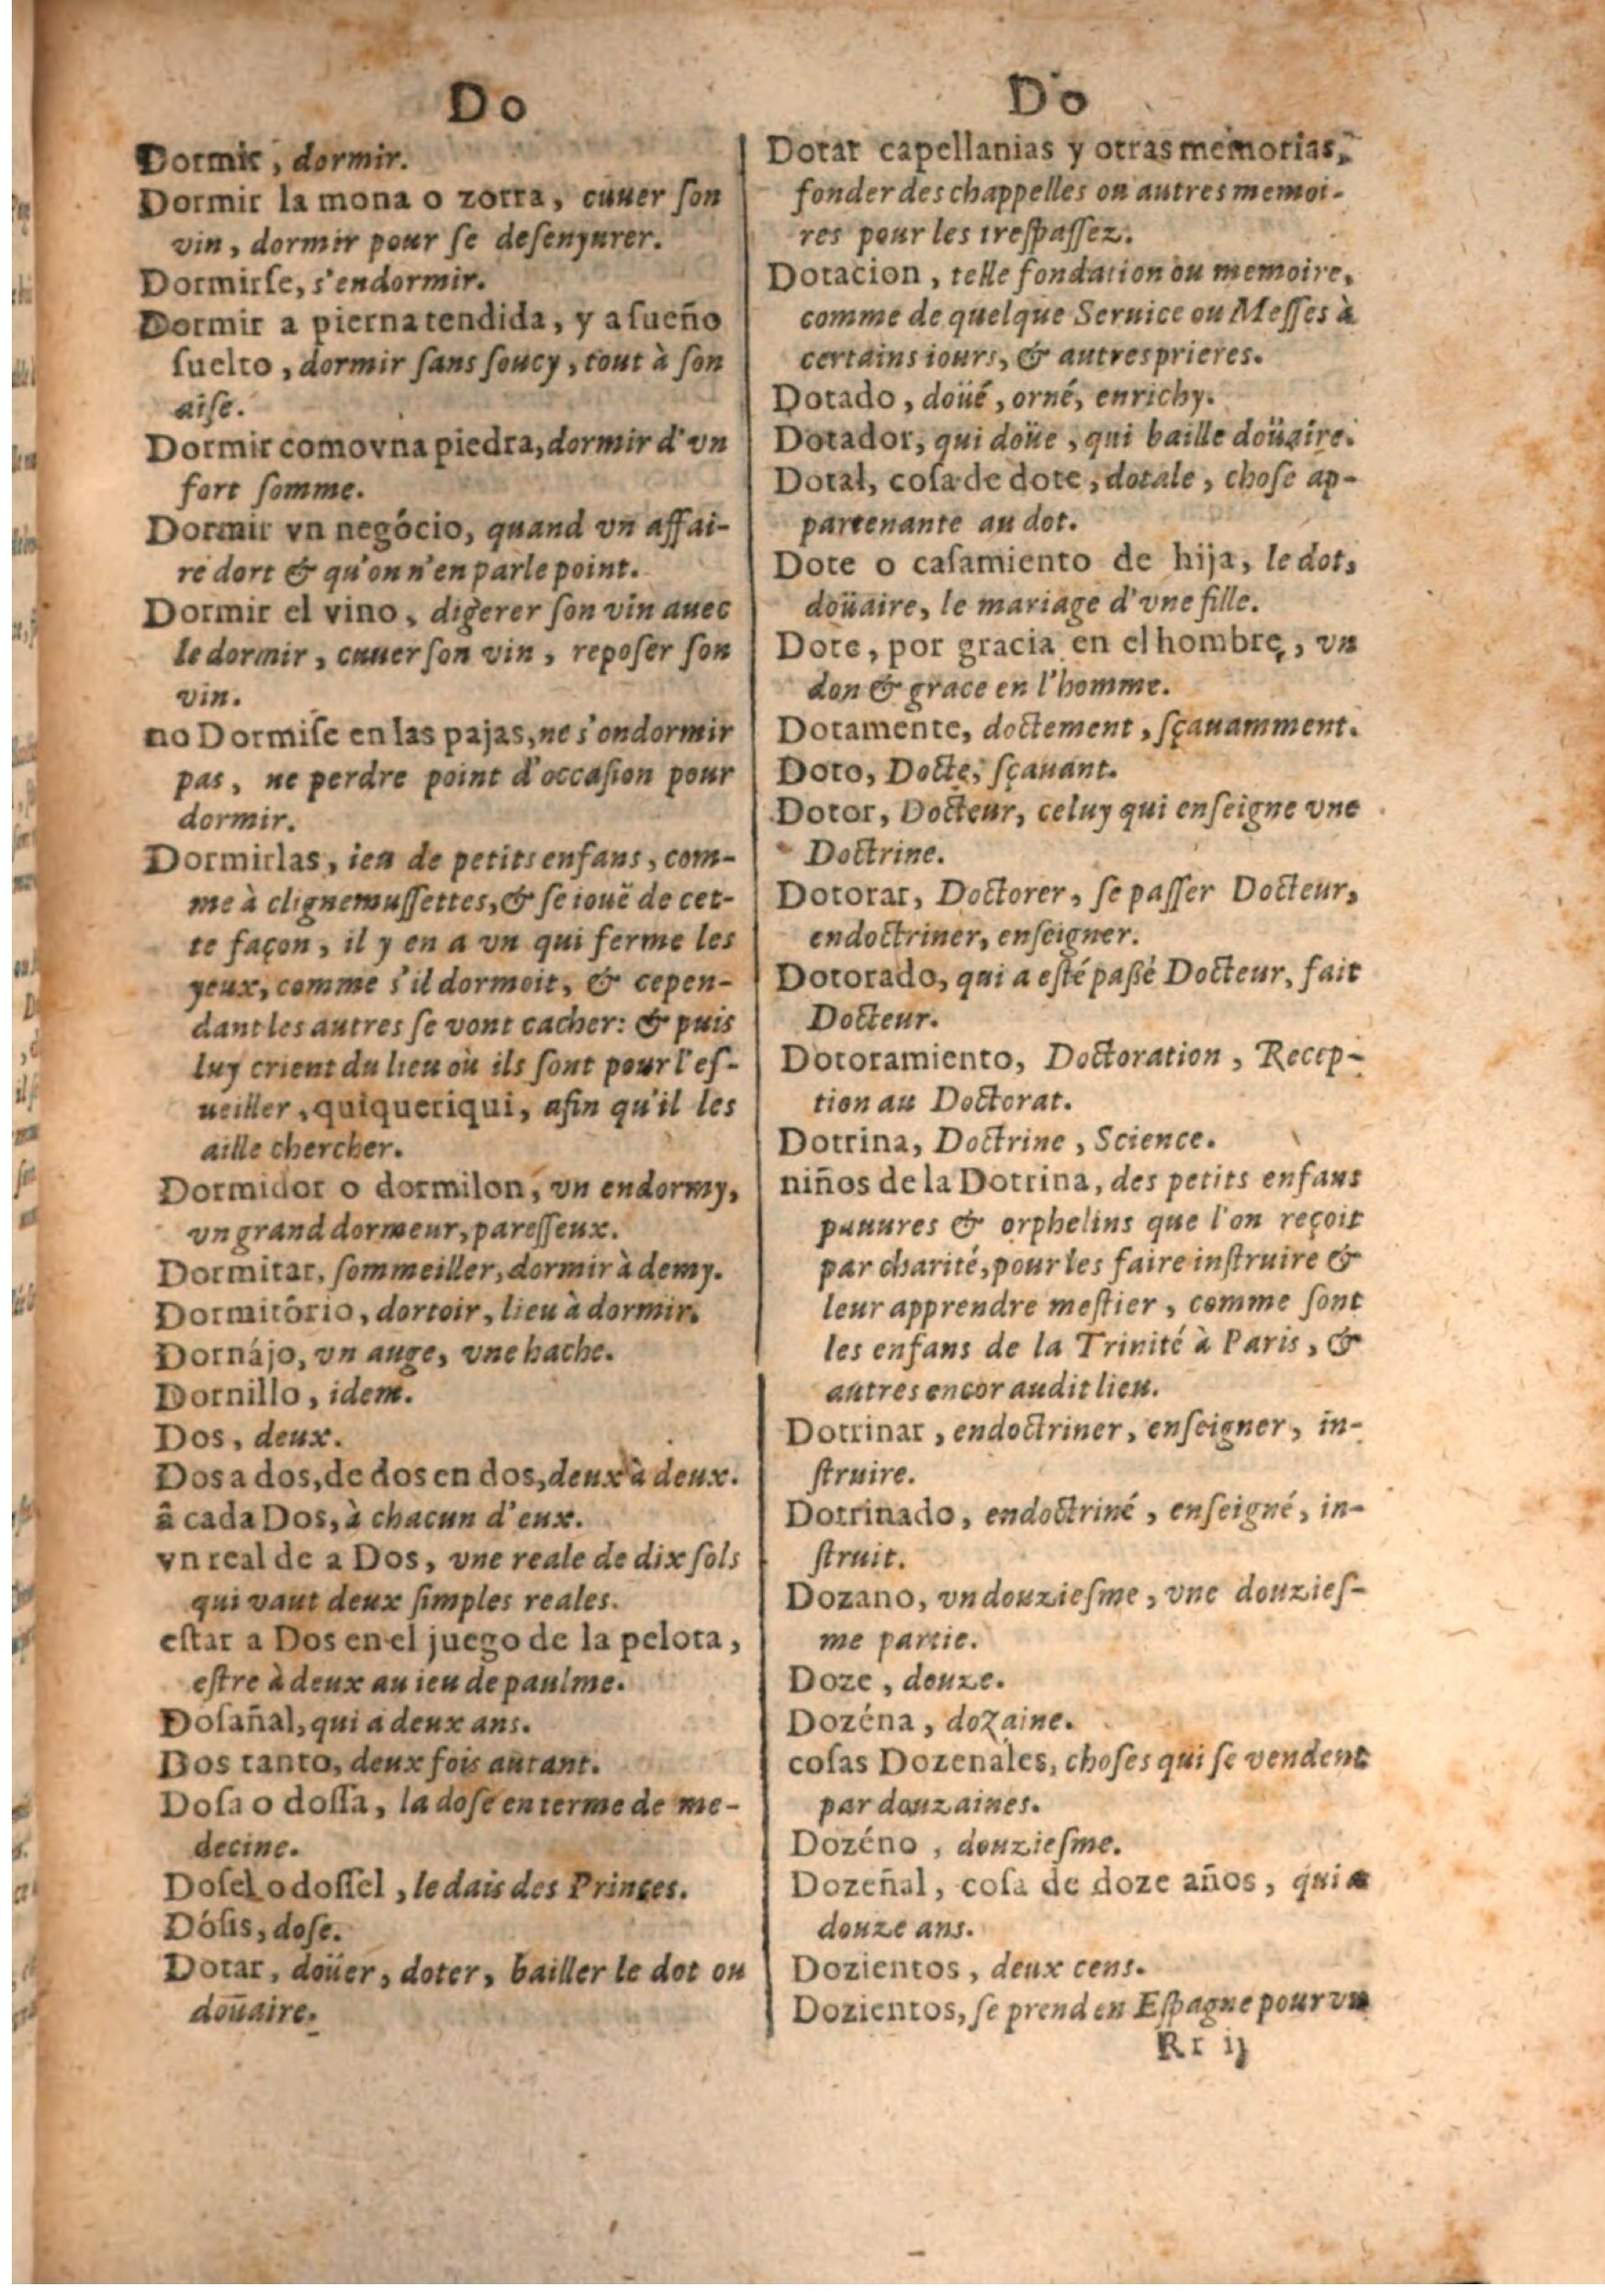 Do
Dormir, dormir.
Dormir la mona o zorra, cuuer ſon
vin, dormir pour ſe deſenyurer.
Dormirſe, s'endormir.
Dormir a pierna tendida, y a ſueño
ſuelto, dormir ſans ſoucy, tout à ſon
aiſe.
Dormir como vna piedra, dormir d'vn
fort ſomme.
Dormir vn negócio, quand vn affai-
re dort & qu'on n'en parle point.
Dormir el vino, digerer ſon vin auec
le dormir, cuuer ſon vin, repoſer ſon
vin.
no Dormiſe en las pajas, ne s'ondormir
pas, ne perdre point d'occaſion pour
dormir.
Dormirlas, ieu de petits enfans, com-
me à clignemuſſettes, & ſe iouë de cet-
te façon, il y en a vn qui ferme les
yeux, comme s'il dormoit, & cepen-
dant les autres ſe vont cacher: & puis
luy crient du lieu où ils ſont pour l'eſ-
ueiller, quiqueriqui, afin qu'il les
aille chercher.
Dormidor o dormilon, vn endormy,
vn grand dormeur, pareſſeux.
Dormitar, ſommeiller, dormir à demy.
Dormitôrio, dortoir, lieu à dormir.
Dornájo, vn auge, vne hache.
Dornillo, idem.
Dos, deux.
Dos a dos, de dos en dos, deux à deux.
â cada Dos, à chacun d'eux.
vn real de a Dos, vne reale de dix ſols
qui vaut deux ſimples reales.
eſtar a Dos en el juego de la pelota,
eſtre à deux au ieu de paulme.
Doſañal, qui a deux ans.
Dos tanto, deux fois autant.
Doſa o doſſa, la doſe en terme de me-
decine.
Doſel o doſſel, le dais des Princes.
Dóſis, doſe.
Dotar, doüer, doter, bailler le dot ou
doüaire.
Do
Dotar capellanias y otras memorias,
fonder des chappelles ou autres memoi-
res pour les treſpaſſez.
Dotacion, telle fondation ou memoire,
comme de quelque Seruice ou Meſſes à
certains iours, & autres prieres.
Dotado, doüé, orné, enrichy.
Dotador, qui doüe, qui baille doüaire.
Dotal, coſa de dote, dotale, choſe ap-
partenante au dot.
Dote o caſamiento de hija, le dot,
doüaire, le mariage d'vne fille.
Dote, por gracia en el hombre, vn
don & grace en l'homme.
Dotamente, doctement, ſçauamment.
Doto, Docte, ſçauant.
Dotor, Docteur, celuy qui enſeigne vne
Doctrine.
Dotorar, Doctorer, ſe paſſer Docteur,
endoctriner, enſeigner.
Dotorado, qui a eſté paßé Docteur, fait
Docteur.
Dotoramiento, Doctoration, Recep-
tion au Doctorat.
Dotrina, Doctrine, Science.
niños de la Dotrina, des petits enfans
pauures & orphelins que l'on reçoit
par charité, pour les faire inſtruire &
leur apprendre meſtier, comme ſont
les enfans de la Trinité à Paris, &
autres encor audit lieu.
Dotrinar, endoctriner, enſeigner, in-
ſtruire.
Dotrinado, endoctriné, enſeigné, in-
ſtruit.
Dozano, vn douzieſme, vne douzieſ-
me partie.
Doze, douze.
Dozéna, dozaine.
coſas Dozenàles, choſes qui ſe vendent
par douzaines.
Dozéno, douzieſme.
Dozeñal, coſa de doze años, qui a
douze ans.
Dozientos, deux cens.
Dozientos, ſe prend en Eſpagne pour vn
Rr ij